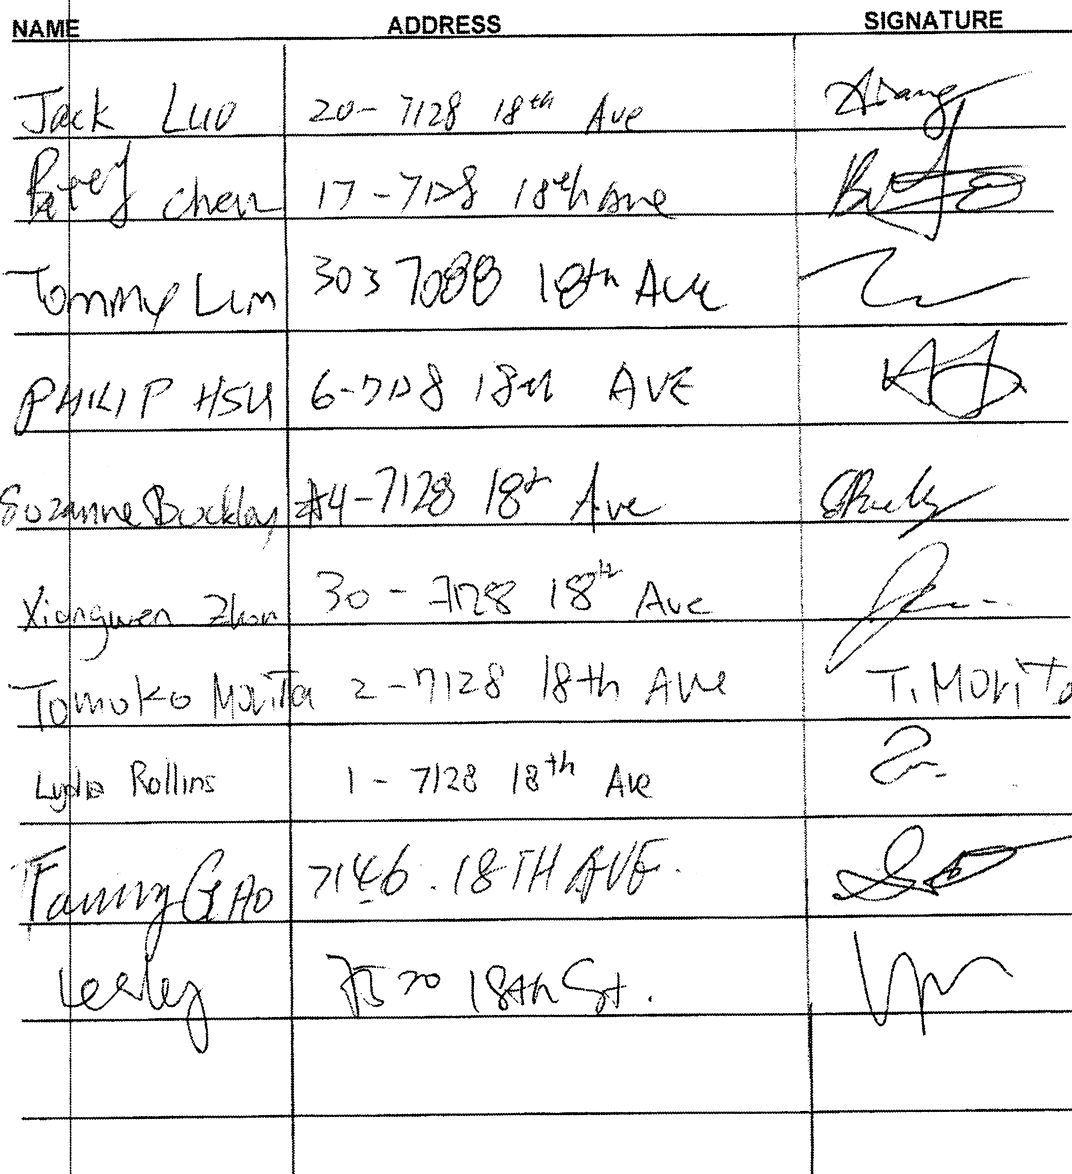 NAME ADDRESS SIGNATURE
Jack Luo 20- 7128 18th Ave
Betty Chen 17-7128 18th Ave
Tommy Lim 303 7088 18th Ave
PHILIP HSU 6-7128 18th AVE
Suzanne Buckley #4-7128 18th Ave
Xiangwen Zhou 30 - 7128 18th Ave
Tomoko Morita 2-7128 18th Ave T. Morita
Lydia Rollins 1 - 7128 18th Ave
Fanny GAO 7146. 18TH AVE.
Lesley 18th St.